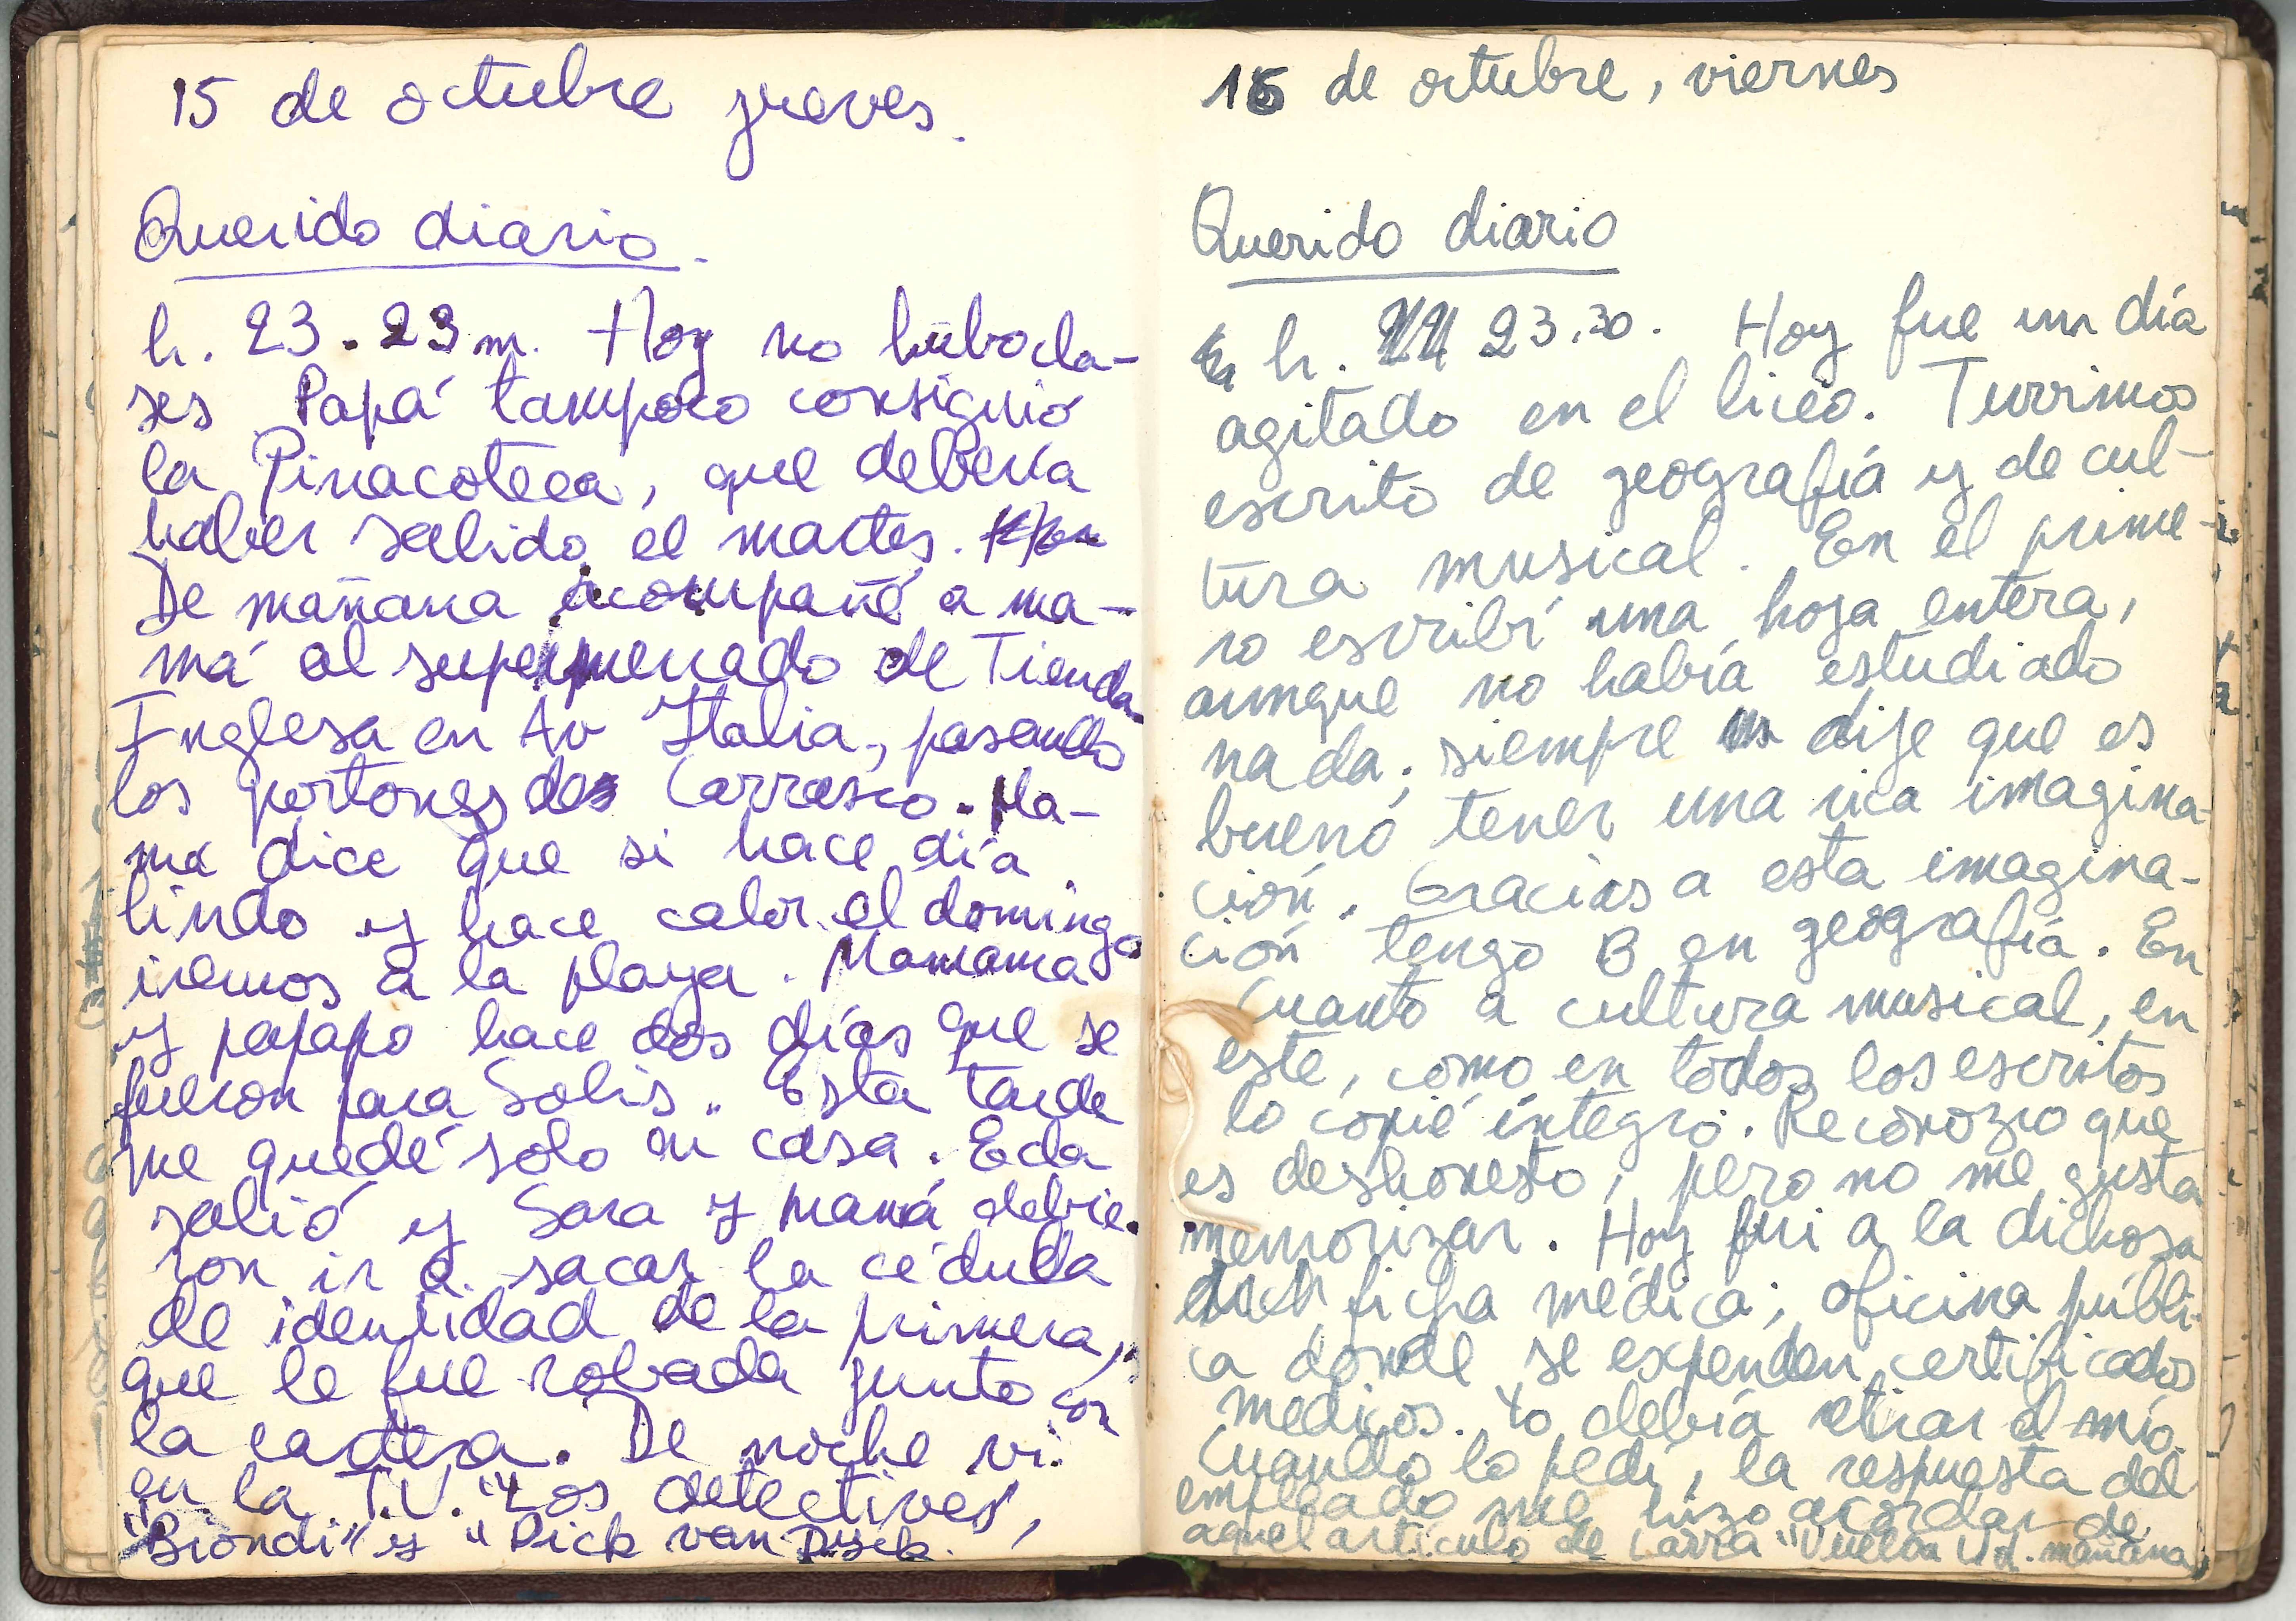 15 de octubre jueves.
Querido diario.
h. 23.23 m. Hoy no hubo cla-
ses. Papá tampoco consiguió
la Pinacoteca, que debería
haber salido el martes.
De mañana acompañé a ma-
má al supermercado de Tienda
Inglesa en Av Italia, pasando
los portones de Carrasco. Ma-
ma dice que si hace día
lindo y hace calor el domingo
iremos a la playa. Mamama
y papapo hace dos días que se
fueron para Solís. Esta tarde
me quedé solo en casa. Eda
salió y Sara y mamá debie-
ron ir a sacar la cédula
de identidad de la primera,
que le fue robada junto con
la cartera. De noche vi
en la T.V. "Los detectives",
"Biondi" y "Dick van Dyck.
16 de octubre, viernes
Querido diario
h. 23.30. Hoy fue un día
agitado en el liceo. Tuvimos
escrito de geografía y de cul-
tura musical. En el prime-
ro escribí una hoja entera,
aunque no había estudiado
nada; siempre dije que es
bueno tener una rica imagina-
ción. Gracias a esta imagina-
ción tengo B en geografía. En
cuanto a cultura musical, en
este, como en todos los escritos
lo copié íntegro. Reconozco que
es deshonesto, pero no me gusta
memorizar. Hoy fui a la dichosa
ficha médica; oficina públi-
ca donde se expenden certificados
médicos. Yo debía retirar el mío.
Cuando lo pedí, la respuesta del
empleado me hizo acordar de
aquel artículo de Larra "Vuelva Ud. mañana"